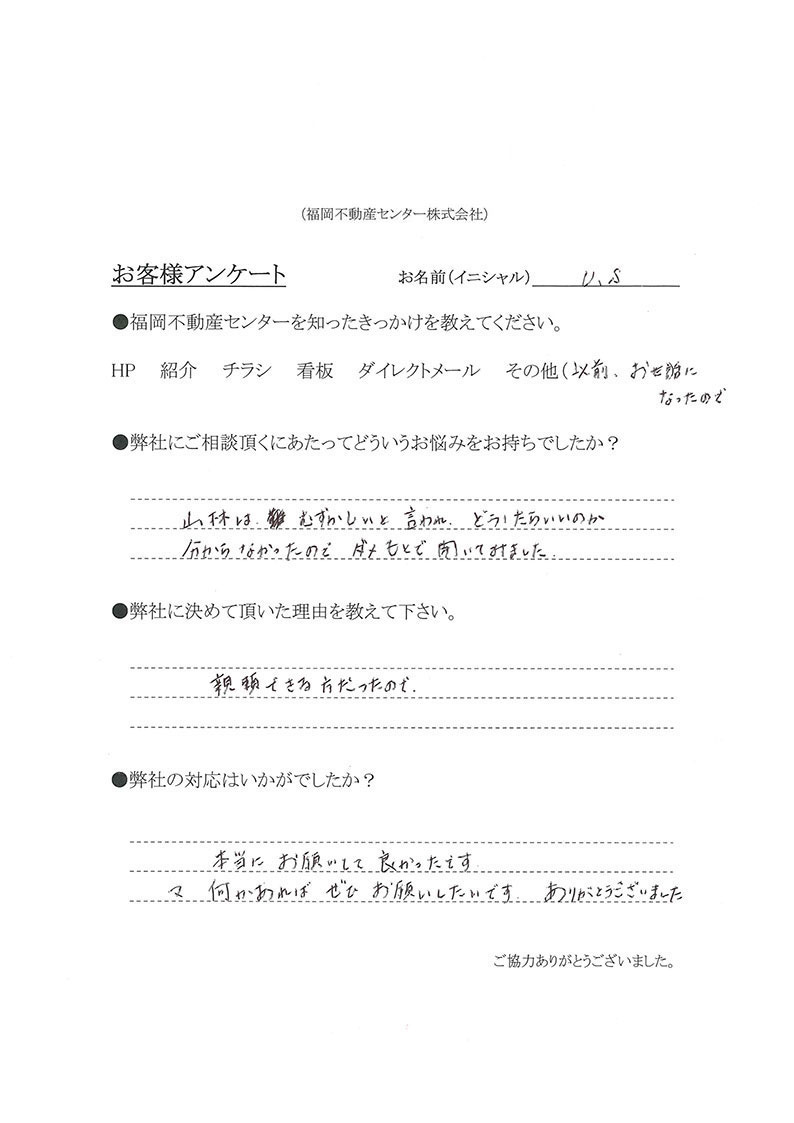 （福岡不動産センター株式会社）
お客様アンケート　お名前（イニシャル） U、S
●福岡不動産センターを知ったきっかけを教えてください。
HP　紹介　チラシ　看板　ダイレクトメール　その他（以前、お世話に
なったので
●弊社にご相談頂くにあたってどういうお悩みをお持ちでしたか？
山林は、むずかしいと言われ、どうしたらいいのか
分からなかったので ダメもとで聞いてみました。
●弊社に決めて頂いた理由を教えて下さい。
親頼できる方だったので。
●弊社の対応はいかがでしたか？
本当に お願いして 良かったです
何かあれば ぜひ お願いしたいです ありがとうございました
ご協力ありがとうございました。